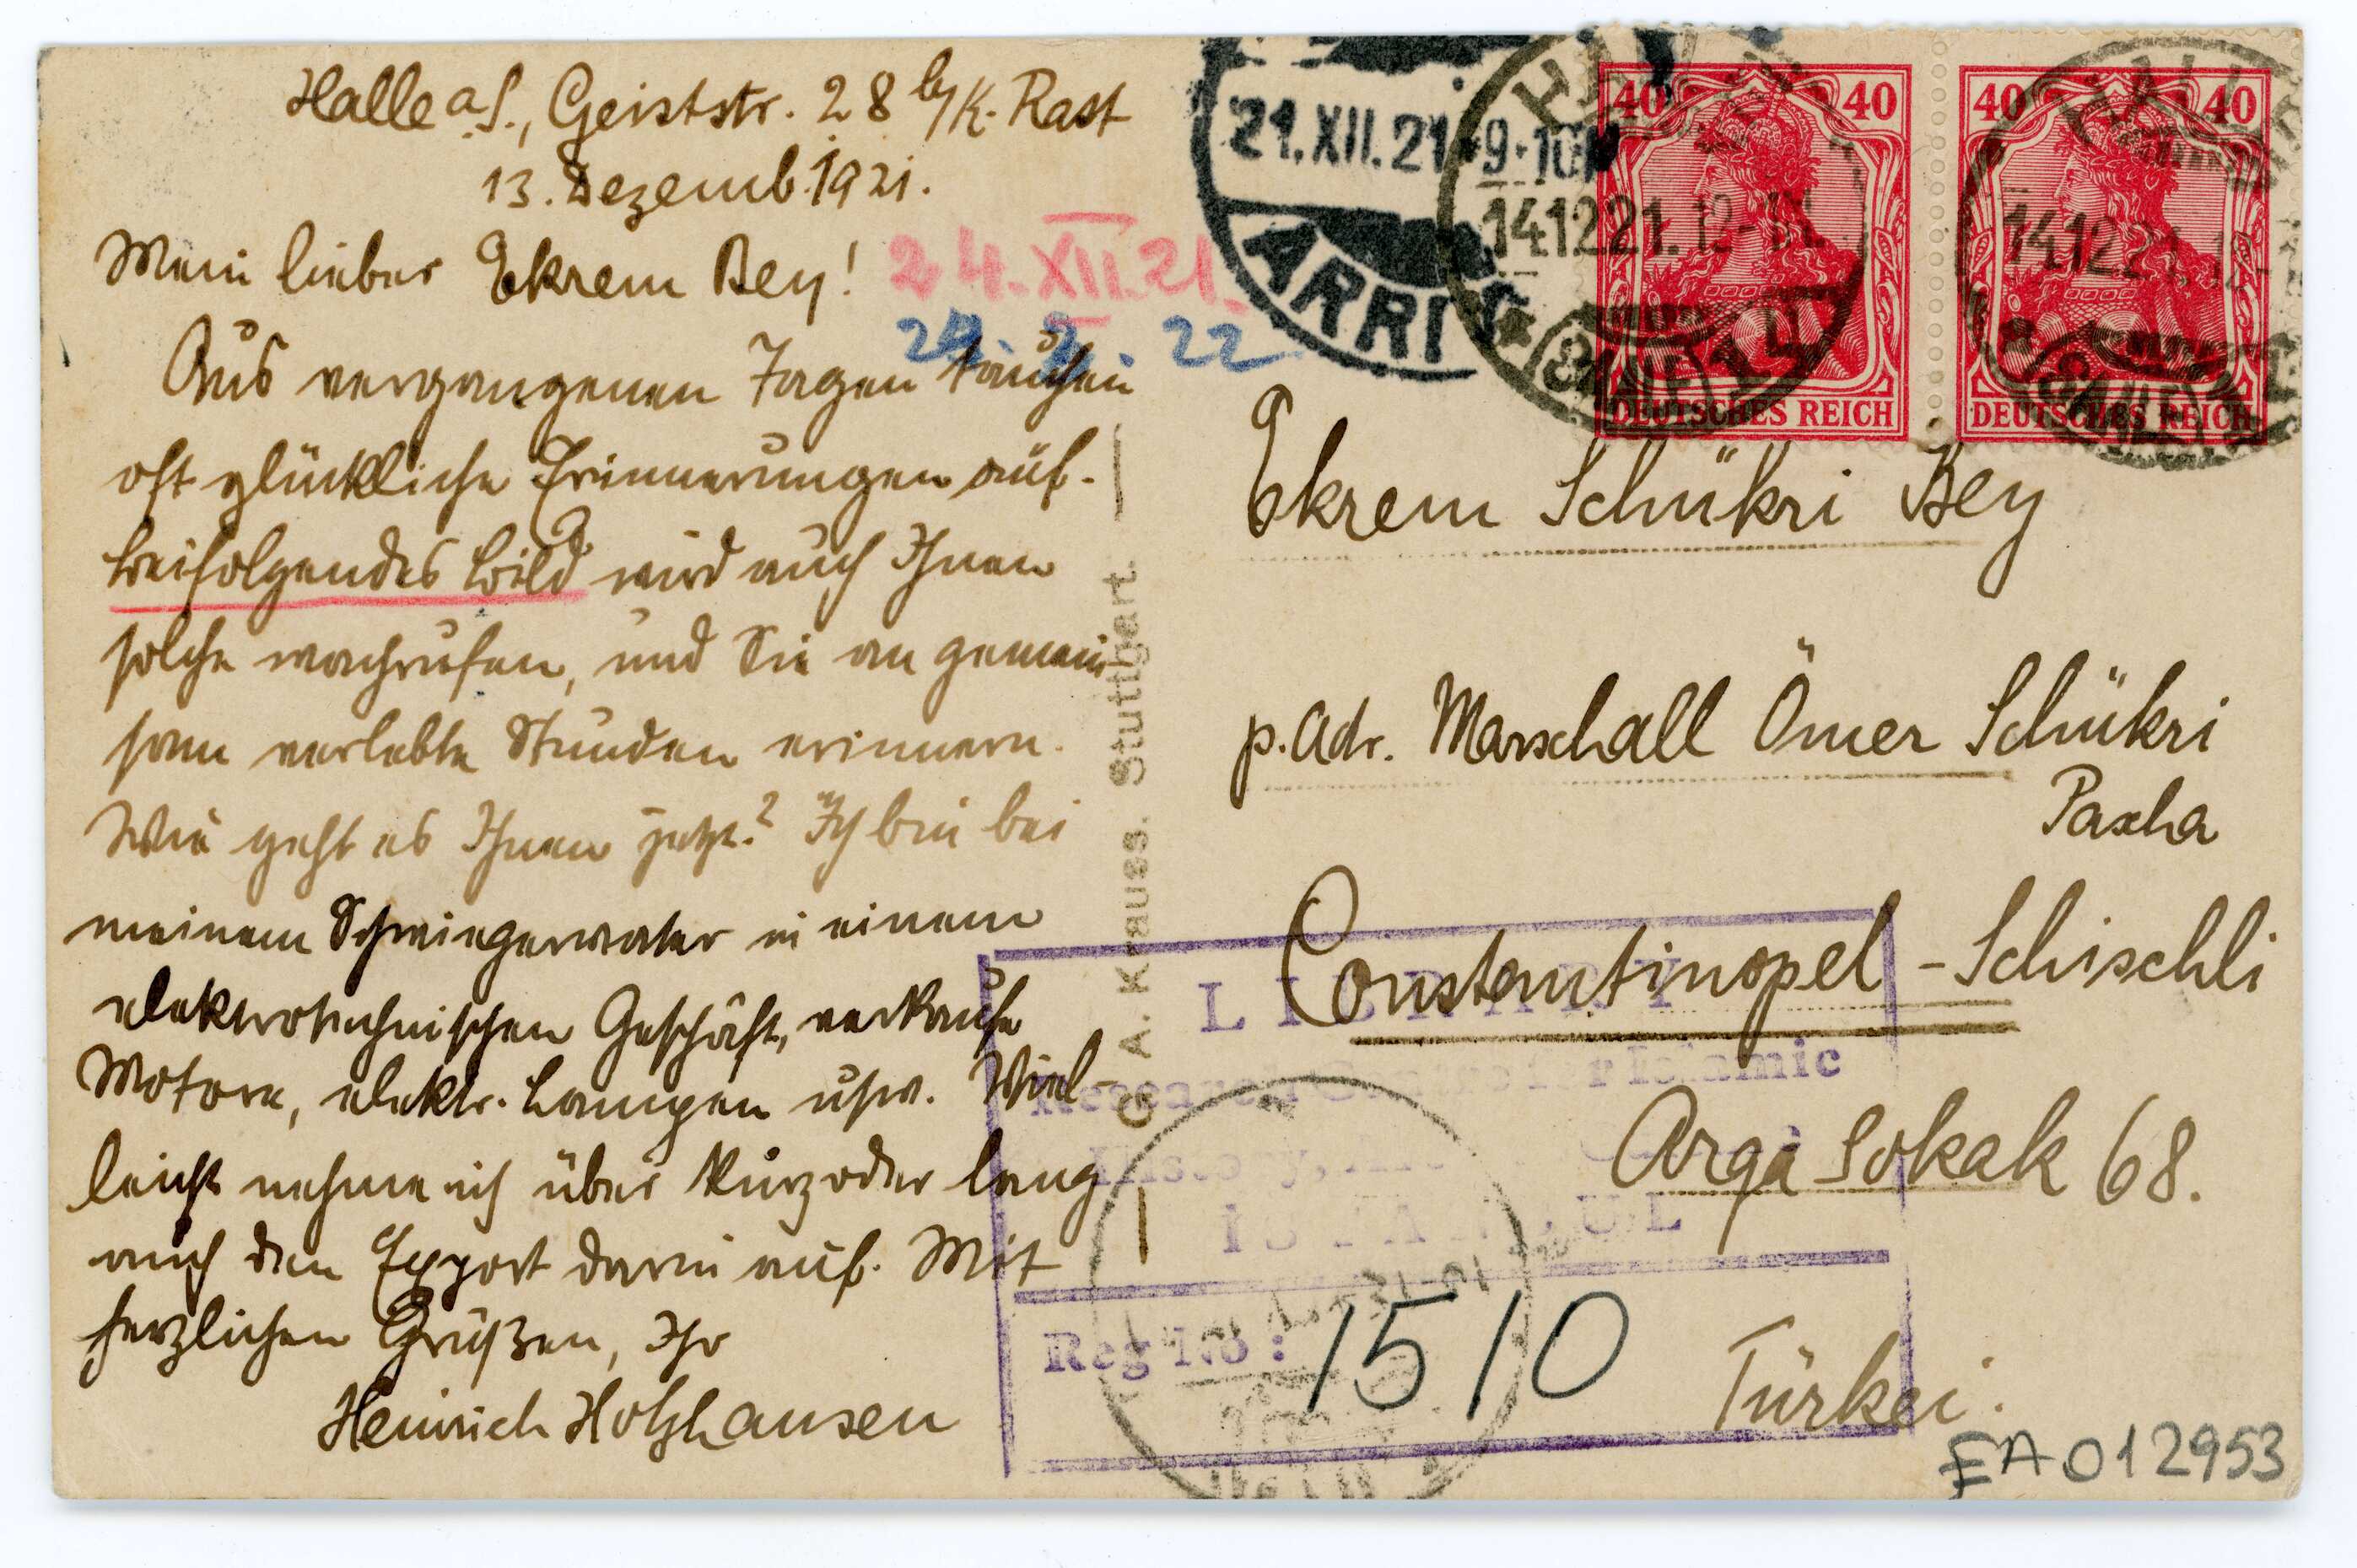 Halle a.S., Geiststr. 28 b/K. Rast
13. Dezemb. 1921.
Mein lieber Ekrem Bey!
24.XII.21.
22
Aus vergangenen Tagen tauchen
oft glückliche Erinnerungen auf.
Beifolgendes Bild wird auch Ihnen
solche wachrufen, und Sie an gemein
sam verlebte Stunden erinnern.
Wie geht es Ihnen jetzt? Ich bin bei
meinem Schwiegervater in einem
elektrotechnischen Geschäft, verkaufe
Motore, elektr. Lampen usw. Viel-
leicht nehme ich über kurz oder lang
auch den Export darin auf. Mit
herzlichen Grüßen, Ihr
Heinrich Holzhausen
G. A. Krauss. Stuttgart
21.XII.21 9-10
ARRI
HALLE
14.12.21. 12-
(SAALE)
40 40
DEUTSCHES REICH
40 40
DEUTSCHES REICH
HALLE
14.12.21. 12-
(SAALE)
Ekrem Schükri Bey
p. Adr. Marschall Ömer Schükri
Pascha
Constantinopel - Schischli
Arga Sokak 68.
Türkei.
LIBRARY
Research Centre for Islamic
History,
ISTANBUL
Reg No : 1510
EA 012953